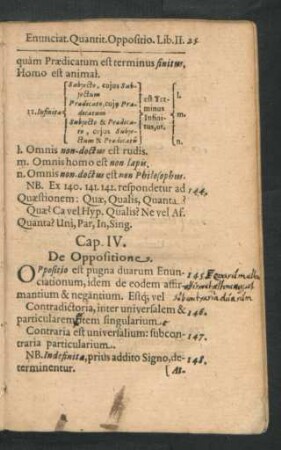 Enunciat. Quantit. Oppositio. Lib. II. 25
quàm Prædicatum est terminus finitus,
Homo est animal.
Subjecto, cujus Sub-
jectum
Prædicato, cujus Præ-
dicatum
Subjecto & Prædica-
to, cujus Subje-
ctum & Prædicatũ
II. Infinita
est Ter-
minus
Infini-
tus, ut.
l.
m.
n.
l. Omnis non-doctus est rudis.
m. Omnis homo est non lapis.
n. Omnis non-doctus est non Philosophus.
NB. Ex 140. 141. 142. respondetur ad 144.
Quæstionem: Quæ, Qualis, Quanta?
Quæ? Ca vel Hyp. Qualis? Ne vel Af.
Quanta? Uni, Par, In, Sing.
Cap. IV.
De Oppositione.
OPpositio est pugna duarum Enun- 145.
ciationum, idem de eodem affir-
mantium & negantium. Estq; vel
Contradictoria, inter universalem & 146.
particularem singularem
Contraria est universalium: subcon- 147.
traria particularium.
NB. Indefinita, prius addito Signo, de- 148.
terminentur.